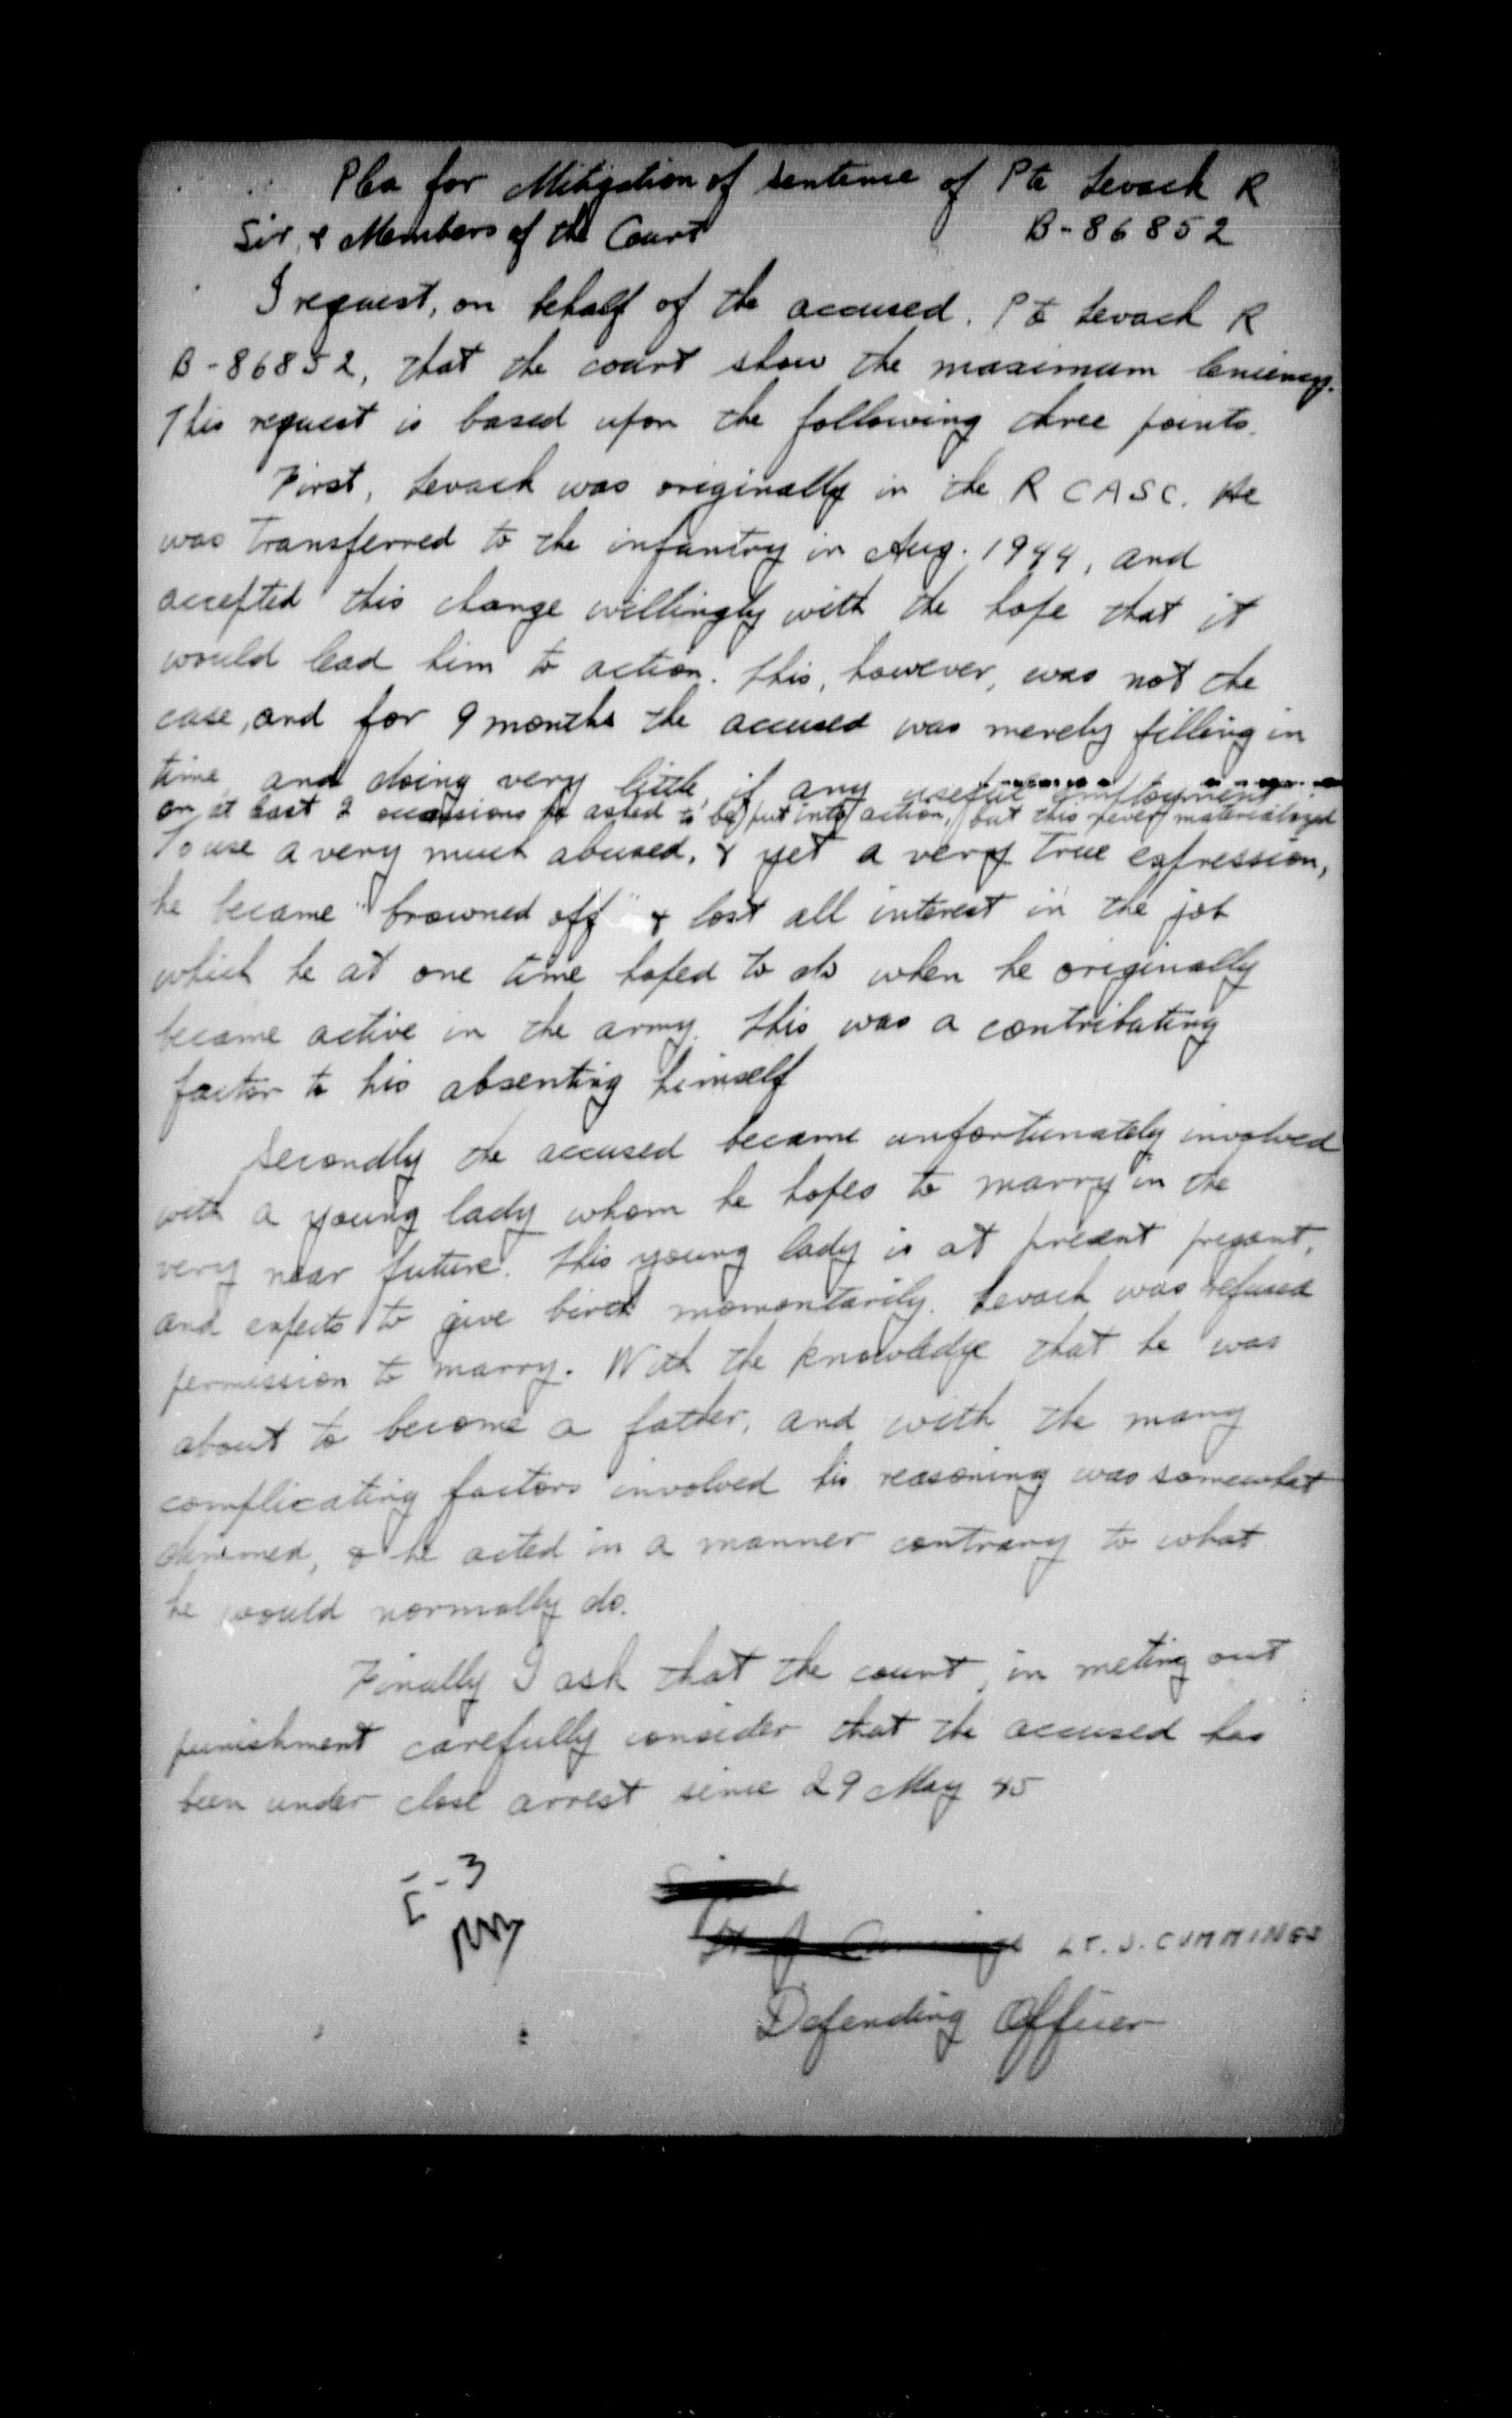 Plea for Mitigation of Sentence of Pte Levack R
Sir, & Members of the Court B-86852
I request, on behalf of the accused, Pte Levack R
B-86852, that the court show the maximum leniency.
This request is based upon the following three points.
First, Levack was originally in the R C A S C. He
was transferred to the infantry in Aug. 1944, and
accepted this change willingly with the hope that it
would lead him to action. This, however, was not the
case, and for 9 months the accused was merely filling in
time, and doing very little, if any useful employment
on at least 2 occasions he asked to be put into action, but this never materialized
To use a very much abused, & yet a very true expression,
he became "browned off" & lost all interest in the job
which he at one time hoped to do when he originally
became active in the army. This was a contributing
factor to his absenting himself
Secondly the accused became unfortunately involved
with a young lady whom he hopes to marry in the
very near future. This young lady is at present pregant,
and expects to give birth momentarily. Levack was refused
permission to marry. With the knowledge that he was
about to become a father, and with the many
complicating factors involved his reasoning was somewhat
dimmed, & he acted in a manner contrary to what
he would normally do.
Finally I ask that the court, in meting out
punishment carefully consider that the accused has
been under close arrest since 29 May 45
LT. J. CUMMINGS
Defending Officer